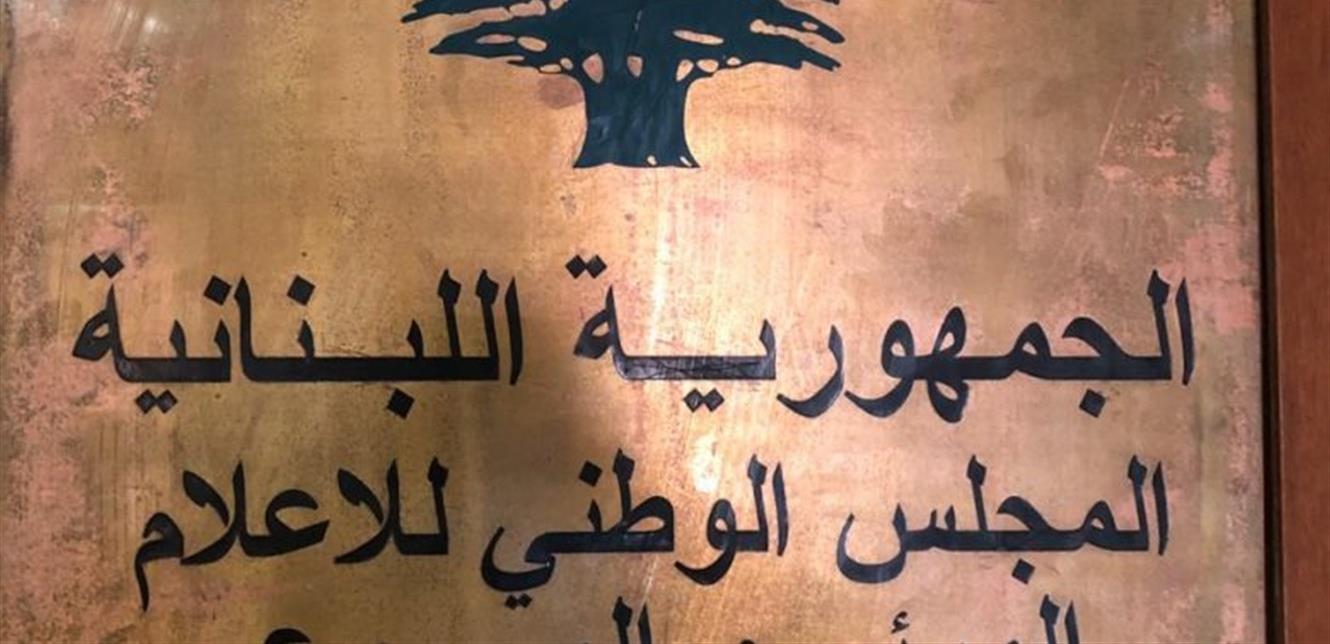 الجمهورية اللبنانية
المجلس الوطني للاعلام